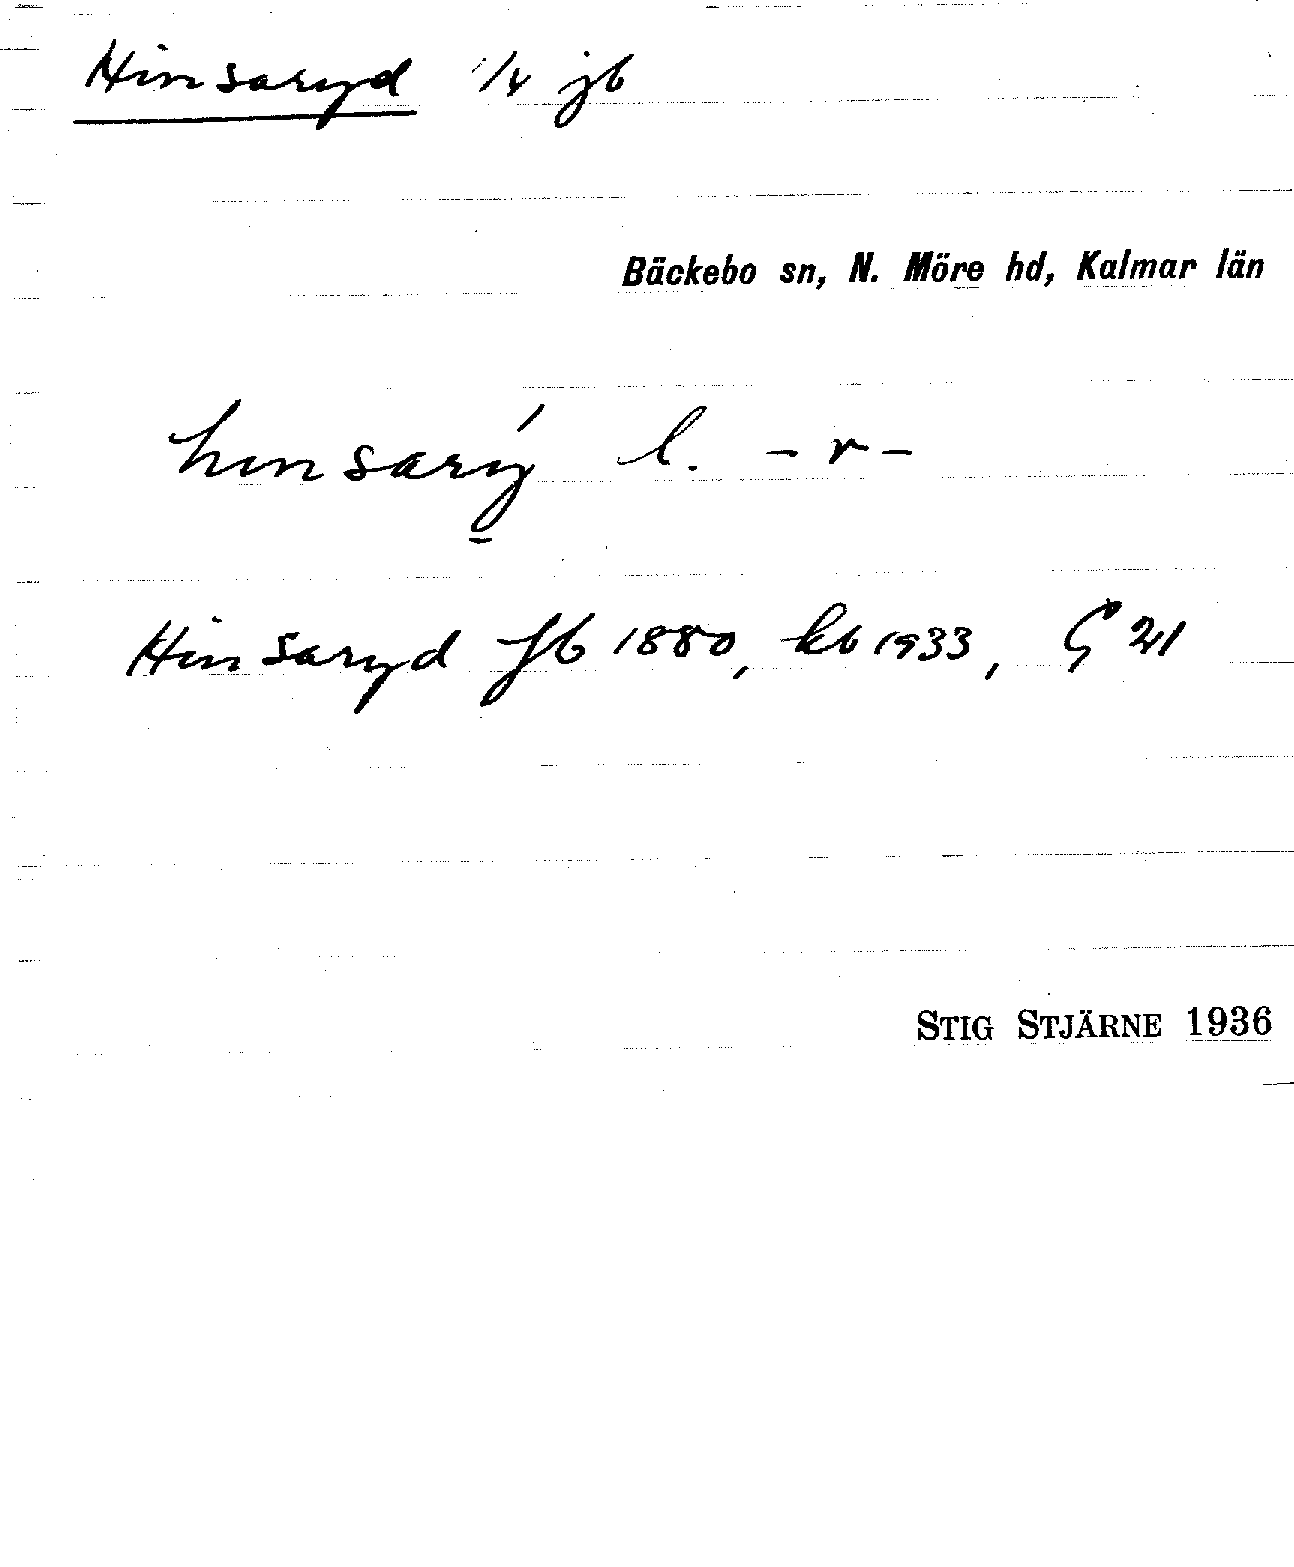 Hinsaryd 1/4 jb
Bäckebo sn, N. Möre hd, Kalmar län
hinsarý l. -r-
Hinsaryd jb 1880, kb 1933, G 21
STIG STJÄRNE 1936